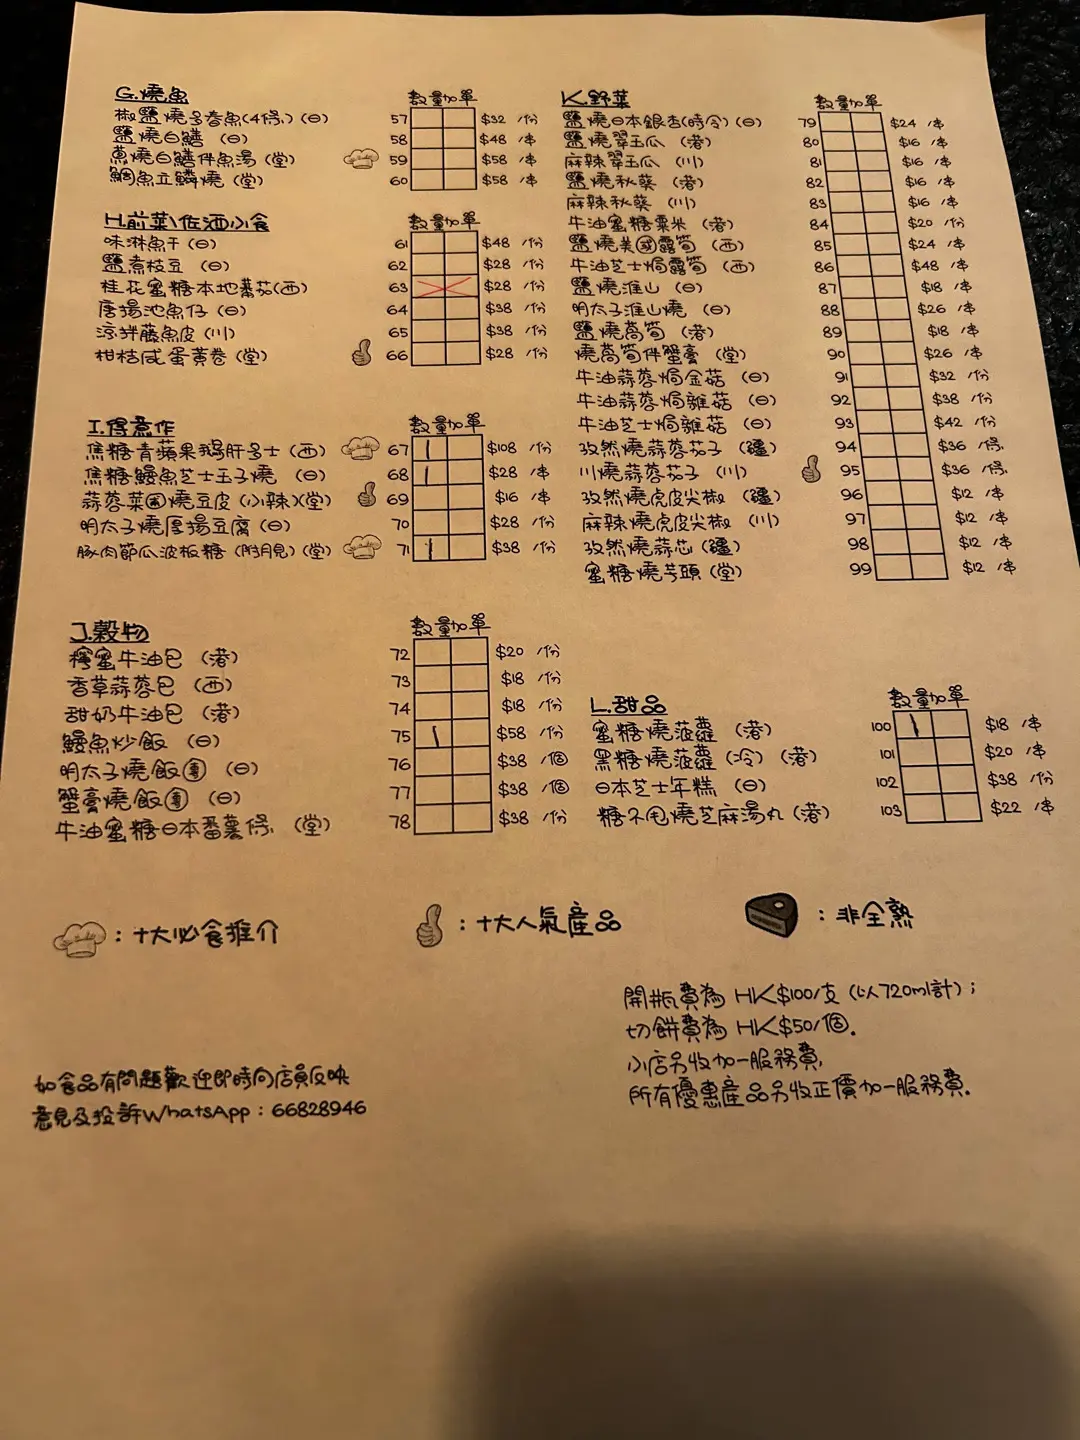 G.燒魚 數量加單
椒鹽燒多春魚(4條) (日) 57 $32 /份
鹽燒白鱔 (日) 58 $48 /串
蔥燒白鱔伴魚湯 (堂) 59 $58 /串
鯛魚立鱗燒 (堂) 60 $58 /串
H.前菜\佐酒小食 數量加單
味淋魚干 (日) 61 $48 /份
鹽煮枝豆 (日) 62 $28 /份
桂花蜜糖本地蕃茄(西) 63 $28 /份
唐揚池魚仔 (日) 64 $38 /份
涼拌藤魚皮 (川) 65 $38 /份
柑桔咸蛋黃卷 (堂) 66 $28 /份
I.得意作 數量加單
焦糖青蘋果鵝肝多士 (西) 67 $108 /份
焦糖鰻魚芝士玉子燒 (日) 68 $28 /串
蒜蓉菜圃燒豆皮 (小辣)(堂) 69 $16 /串
明太子燒厚揚豆腐 (日) 70 $28 /份
豚肉節瓜波板糖 (附月見) (堂) 71 $38 /份
J.穀物 數量加單
檸蜜牛油包 (港) 72 $20 /份
香草蒜蓉包 (西) 73 $18 /份
甜奶牛油包 (港) 74 $18 /份
鰻魚炒飯 (日) 75 $58 /份
明太子燒飯團 (日) 76 $38 /個
蟹膏燒飯團 (日) 77 $38 /個
牛油蜜糖日本番薯條 (堂) 78 $38 /份
K.野菜 數量加單
鹽燒日本銀杏(時令) (日) 79 $24 /串
鹽燒翠玉瓜 (港) 80 $16 /串
麻辣翠玉瓜 (川) 81 $16 /串
鹽燒秋葵 (港) 82 $16 /串
麻辣秋葵 (川) 83 $16 /串
牛油蜜糖粟米 (港) 84 $20 /份
鹽燒美國露筍 (西) 85 $24 /串
牛油芝士焗露筍 (西) 86 $48 /串
鹽燒淮山 (日) 87 $18 /串
明太子淮山燒 (日) 88 $26 /串
鹽燒萵筍 (港) 89 $18 /串
燒萵筍伴蟹膏 (堂) 90 $26 /串
牛油蒜蓉焗金菇 (日) 91 $32 /份
牛油蒜蓉焗雜菇 (日) 92 $38 /份
牛油芝士焗雜菇 (日) 93 $42 /份
孜然燒蒜蓉茄子 (疆) 94 $36 /條
川燒蒜蓉茄子 (川) 95 $36 /條
孜然燒虎皮尖椒 (疆) 96 $12 /串
麻辣燒虎皮尖椒 (川) 97 $12 /串
孜然燒蒜芯 (疆) 98 $12 /串
蜜糖燒芋頭 (堂) 99 $12 /串
L.甜品 數量加單
蜜糖燒菠蘿 (港) 100 $18 /串
黑糖燒菠蘿 (冷) (港) 101 $20 /串
日本芝士年糕 (日) 102 $38 /份
糖不甩燒芝麻湯丸 (港) 103 $22 /串
：十大必食推介
：十大人氣產品
：非全熟
開瓶費為 HK$100/支 (以720ml計)；
切餅費為 HK$50/個.
小店另收加一服務費,
所有優惠產品另收正價加一服務費.
如食品有問題歡迎即時向店員反映
意見及投訴WhatsApp：66828946